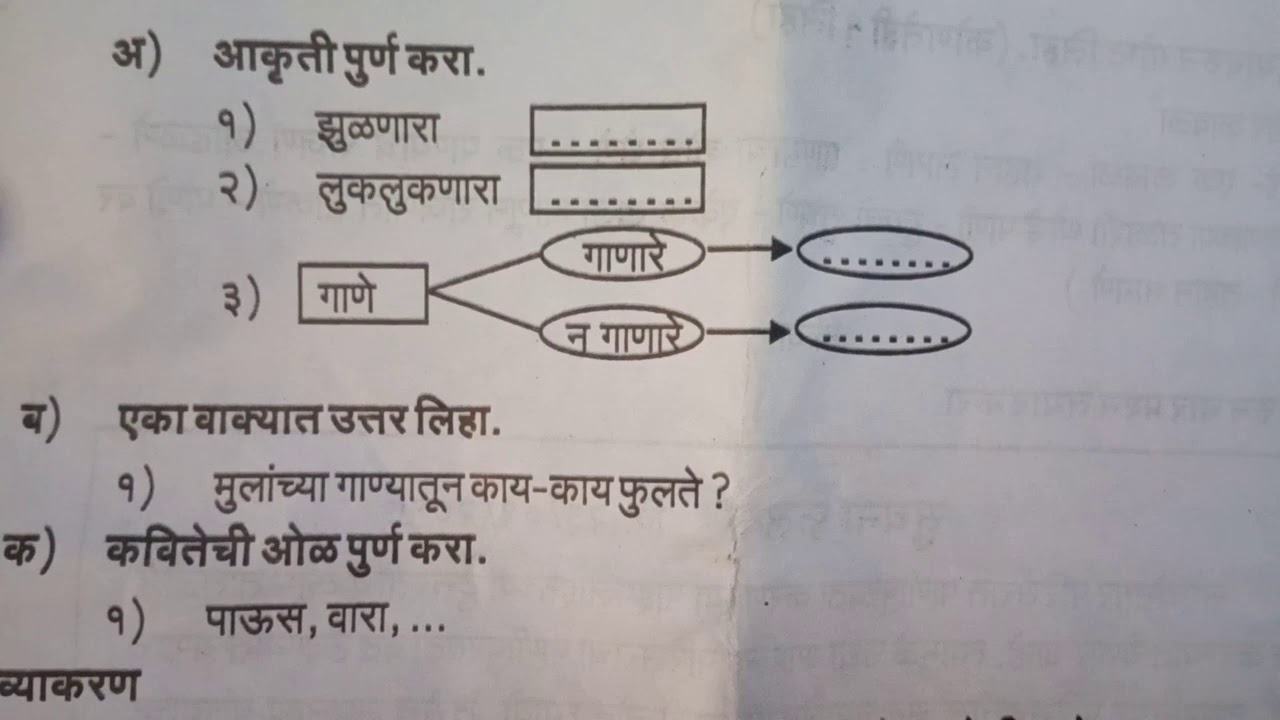 अ) आकृती पुर्ण करा.
१) झुळणारा ........
२) लुकलुकणारा ........
गाणारे ........
३) गाणे
न गाणारे ........
ब) एका वाक्यात उत्तर लिहा.
१) मुलांच्या गाण्यातून काय-काय फुलते ?
क) कवितेची ओळ पुर्ण करा.
१) पाऊस, वारा, ...
व्याकरण